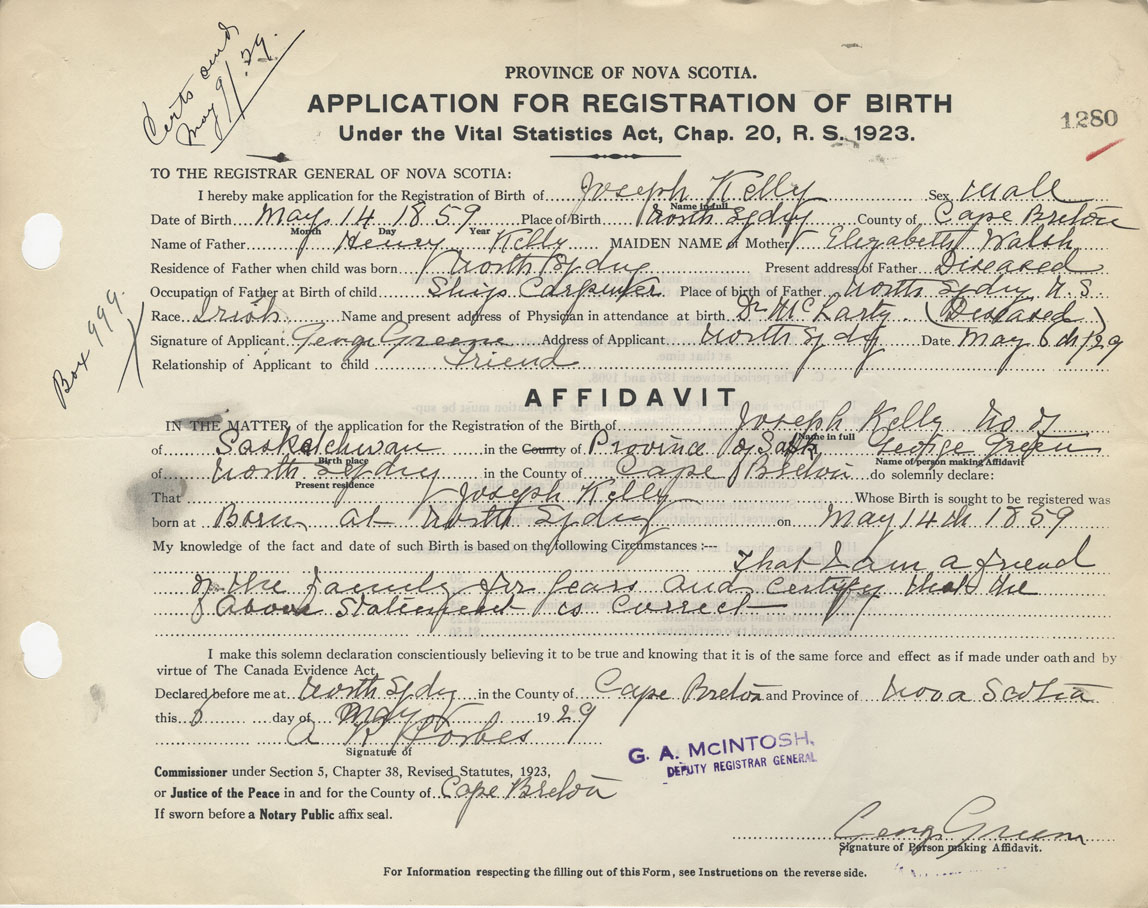 Certs and
May 9/29.
PROVINCE OF NOVA SCOTIA.
APPLICATION FOR REGISTRATION OF BIRTH
Under the Vital Statistics Act, Chap. 20, R. S. 1923.
1280
TO THE REGISTRAR GENERAL OF NOVA SCOTIA:
I hereby make application for the Registration of Birth of Joseph Kelly Sex Male
Name in full
Date of Birth May 14 1859 Place of Birth North Sydney County of Cape Breton
Month Day Year
Name of Father Henry Kelly MAIDEN NAME of Mother Elizabeth Walsh
Residence of Father when child was born North Sydney Present address of Father Diseased
Occupation of Father at Birth of child Ships Carpenter Place of birth of Father North Sydney N.S.
Race Irish Name and present address of Physician in attendance at birth Dr McLarty (Deseased)
Signature of Applicant George Greene Address of Applicant North Sydney Date May 6th/29
Relationship of Applicant to child Friend
Box 999.
AFFIDAVIT
IN THE MATTER of the application for the Registration of the Birth of Joseph Kelly now of
Name in full
of Saskatchwan in the County of Province of Sask George Green
Birth place Name of person making Affidavit
of North Sydney in the County of Cape Breton do solemnly declare:
Present residence
That Joseph Kelly Whose Birth is sought to be registered was
born at Born at North Sydney on May 14th 1859
My knowledge of the fact and date of such Birth is based on the following Circumstances :---
That I am a friend
of the family for years and certify that the
above statement is correct
I make this solemn declaration conscientiously believing it to be true and knowing that it is of the same force and effect as if made under oath and by
virtue of The Canada Evidence Act,
Declared before me at North Sydney in the County of Cape Breton and Province of Nova Scotia
this 6 day of May 1929
A R Forbes
Signature of
G. A. McINTOSH,
DEPUTY REGISTRAR GENERAL
Commissioner under Section 5, Chapter 38, Revised Statutes, 1923,
or Justice of the Peace in and for the County of Cape Breton
If sworn before a Notary Public affix seal.
George Green
Signature of Person making Affidavit.
For Information respecting the filling out of this Form, see Instructions on the reverse side.